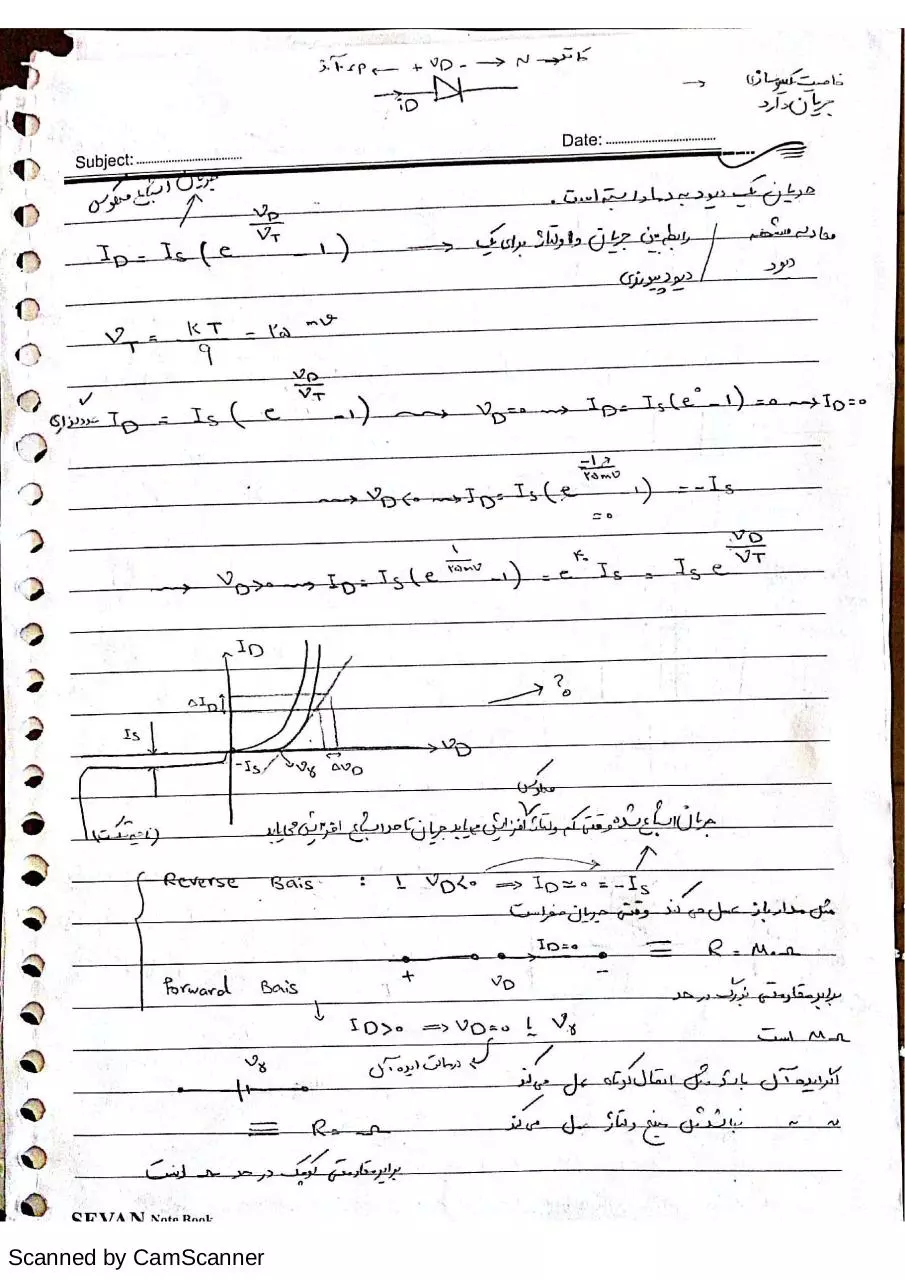 آند P ← + VD - → N → کاتد
iD
خاصیت یکسوسازی
جریان دارد
→
Date: ................................
Subject: ................................
جریان اشباع معکوس
جریان یک دیود به دما وابسته است.
معادله مشخصه دیود / رابطه بین جریان و ولتاژ برای یک دیود پیوندی
I_D = I_s ( e^{V_D/V_T} - 1 )
V_T = KT/q = ۲۵ mv
عددگذاری I_D = I_s ( e^{V_D/V_T} - 1 ) ⟿ V_D=0 ⟿ I_D = I_s(e^0 - 1) = 0 ⟿ I_D=0
⟿ V_D<0 ⟿ I_D = I_s(e^{-1v/۲۵mv} - 1) = -I_s
=0
⟿ V_D>0 ⟿ I_D = I_s(e^{1/۲۵mv} - 1) = e^{۴۰} I_s = I_s e^{V_D/V_T}
I_D
ΔI_D
→ ?
I_s
V_D
-I_s V_γ ΔV_D
معکوس
جریان اشباع شده وقتی کم ولتاژ افزایش می‌یابد جریان تا حد اشباع افزایش می‌یابد
(ناحیه شکست)
Reverse Bais : V_D<0 ⇒ I_D≃0 = -I_s
مثل مدار باز عمل می کند وقتی جریان صفر است
+ V_D I_D=0 - ≡ R = MΩ
Forward Bais
برابر مقاومتی بزرگ در حد
MΩ است
I_D>0 ⇒ V_D=0 یا V_γ
در حالت ایده آل
V_γ
اگر ایده آل باشد مثل اتصال کوتاه عمل می‌کند
〃 〃 نباشد مثل منبع ولتاژ عمل می‌کند
≡ R = Ω
برابر مقاومتی کوچک در حد Ω است
SEVAN Note Book
Scanned by CamScanner